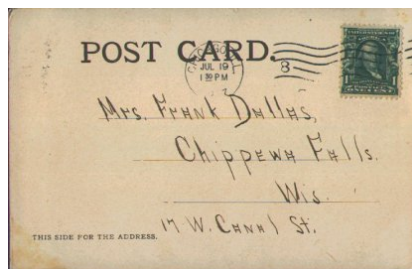 POST CARD.
CHICAGO, ILL.
JUL 19
1 30 PM
8
Mrs. Frank Dallas,
Chippewa Falls.
Wis.
17 W. Canal St.
THIS SIDE FOR THE ADDRESS.